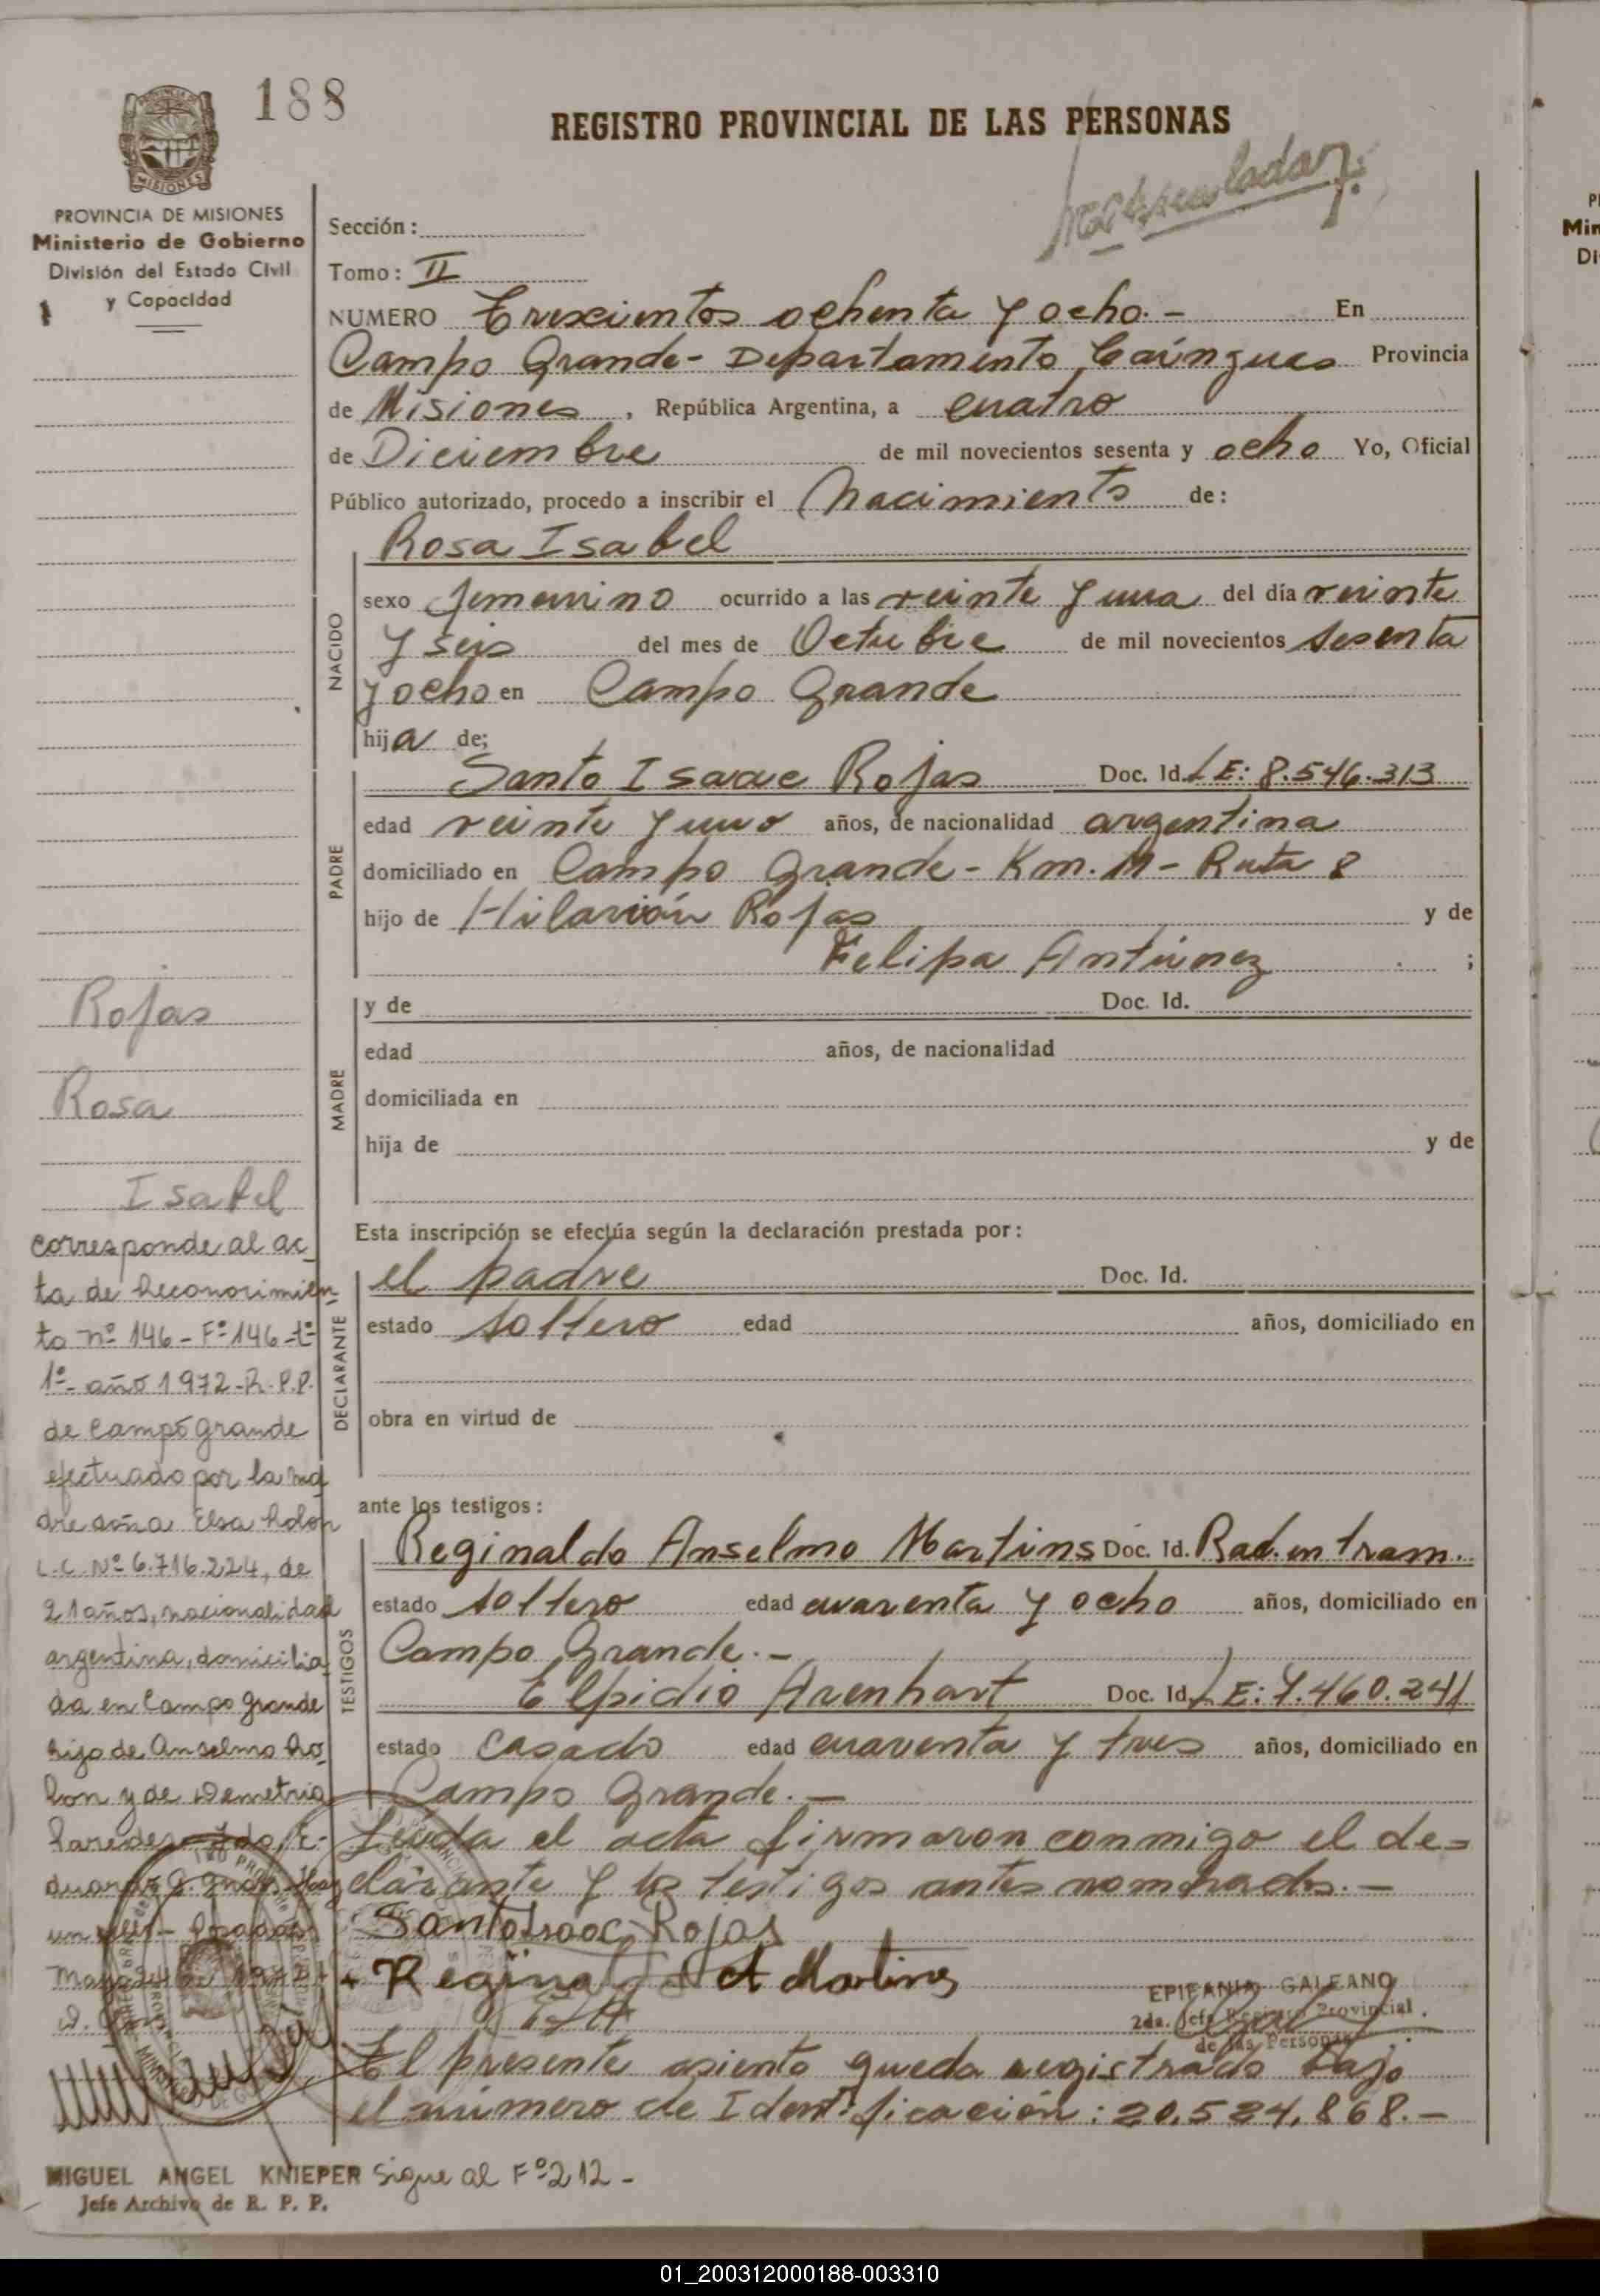 188
REGISTRO PROVINCIAL DE LAS PERSONAS
MISIONES
PROVINCIA DE MISIONES
Ministerio de Gobierno
División del Estado Civil
y Capacidad
Sección:
Tomo: II
NUMERO Trescientos ochenta y ocho.- En
Campo Grande- Departamento Caingues Provincia
de Misiones, República Argentina, a cuatro
de Diciembre de mil novecientos sesenta y ocho Yo, Oficial
Público autorizado, procedo a inscribir el Nacimiento de:
Rosa Isabel
NACIDO
sexo femenino ocurrido a las veinte y una del día veinte
y seis del mes de Octubre de mil novecientos sesenta
y ocho en Campo Grande
hija de;
PADRE
Santo Isaac Rojas Doc. Id. LE: 8.546.313
edad veinte y uno años, de nacionalidad argentina
domiciliado en Campo Grande- Km. 11- Ruta 8
hijo de Hilarión Rojas y de
Felipa Antúnez ;
MADRE
y de Doc. Id.
edad años, de nacionalidad
domiciliada en
hija de y de
Esta inscripción se efectúa según la declaración prestada por:
DECLARANTE
el padre Doc. Id.
estado soltero edad años, domiciliado en
obra en virtud de
ante los testigos:
TESTIGOS
Reginaldo Anselmo Martins Doc. Id. Rad. en tram.
estado soltero edad cuarenta y ocho años, domiciliado en
Campo Grande.-
Elpidio Arenhart Doc. Id. LE: 7.460.241
estado casado edad cuarenta y tres años, domiciliado en
Campo Grande.-
Leída el acta firmaron conmigo el de=
clarante y los testigos antes nombrados.-
Santo Isaac Rojas
Reginaldo A Martins
EPIFANIA GALEANO
2da. Jefe Registro Provincial
de las Personas
El presente asiento queda registrado bajo
el número de Identificación: 20.524.868.-
Rojas
Rosa
Isabel
corresponde al ac
ta de Reconocimien
to nº 146- Fº 146-tº
1º- año 1972-R.P.P.
de Campo Grande
efectuado por la ma
dre doña Elsa Rolon
L.C. Nº 6.716.224, de
21 años, nacionalidad
argentina, domicilia
da en Campo Grande
hija de Anselmo Ro
lon y de Demetria
Paredes
MIGUEL ANGEL KNIEPER Sigue al Fº 212-
Jefe Archivo de R. P. P.
01_200312000188-003310